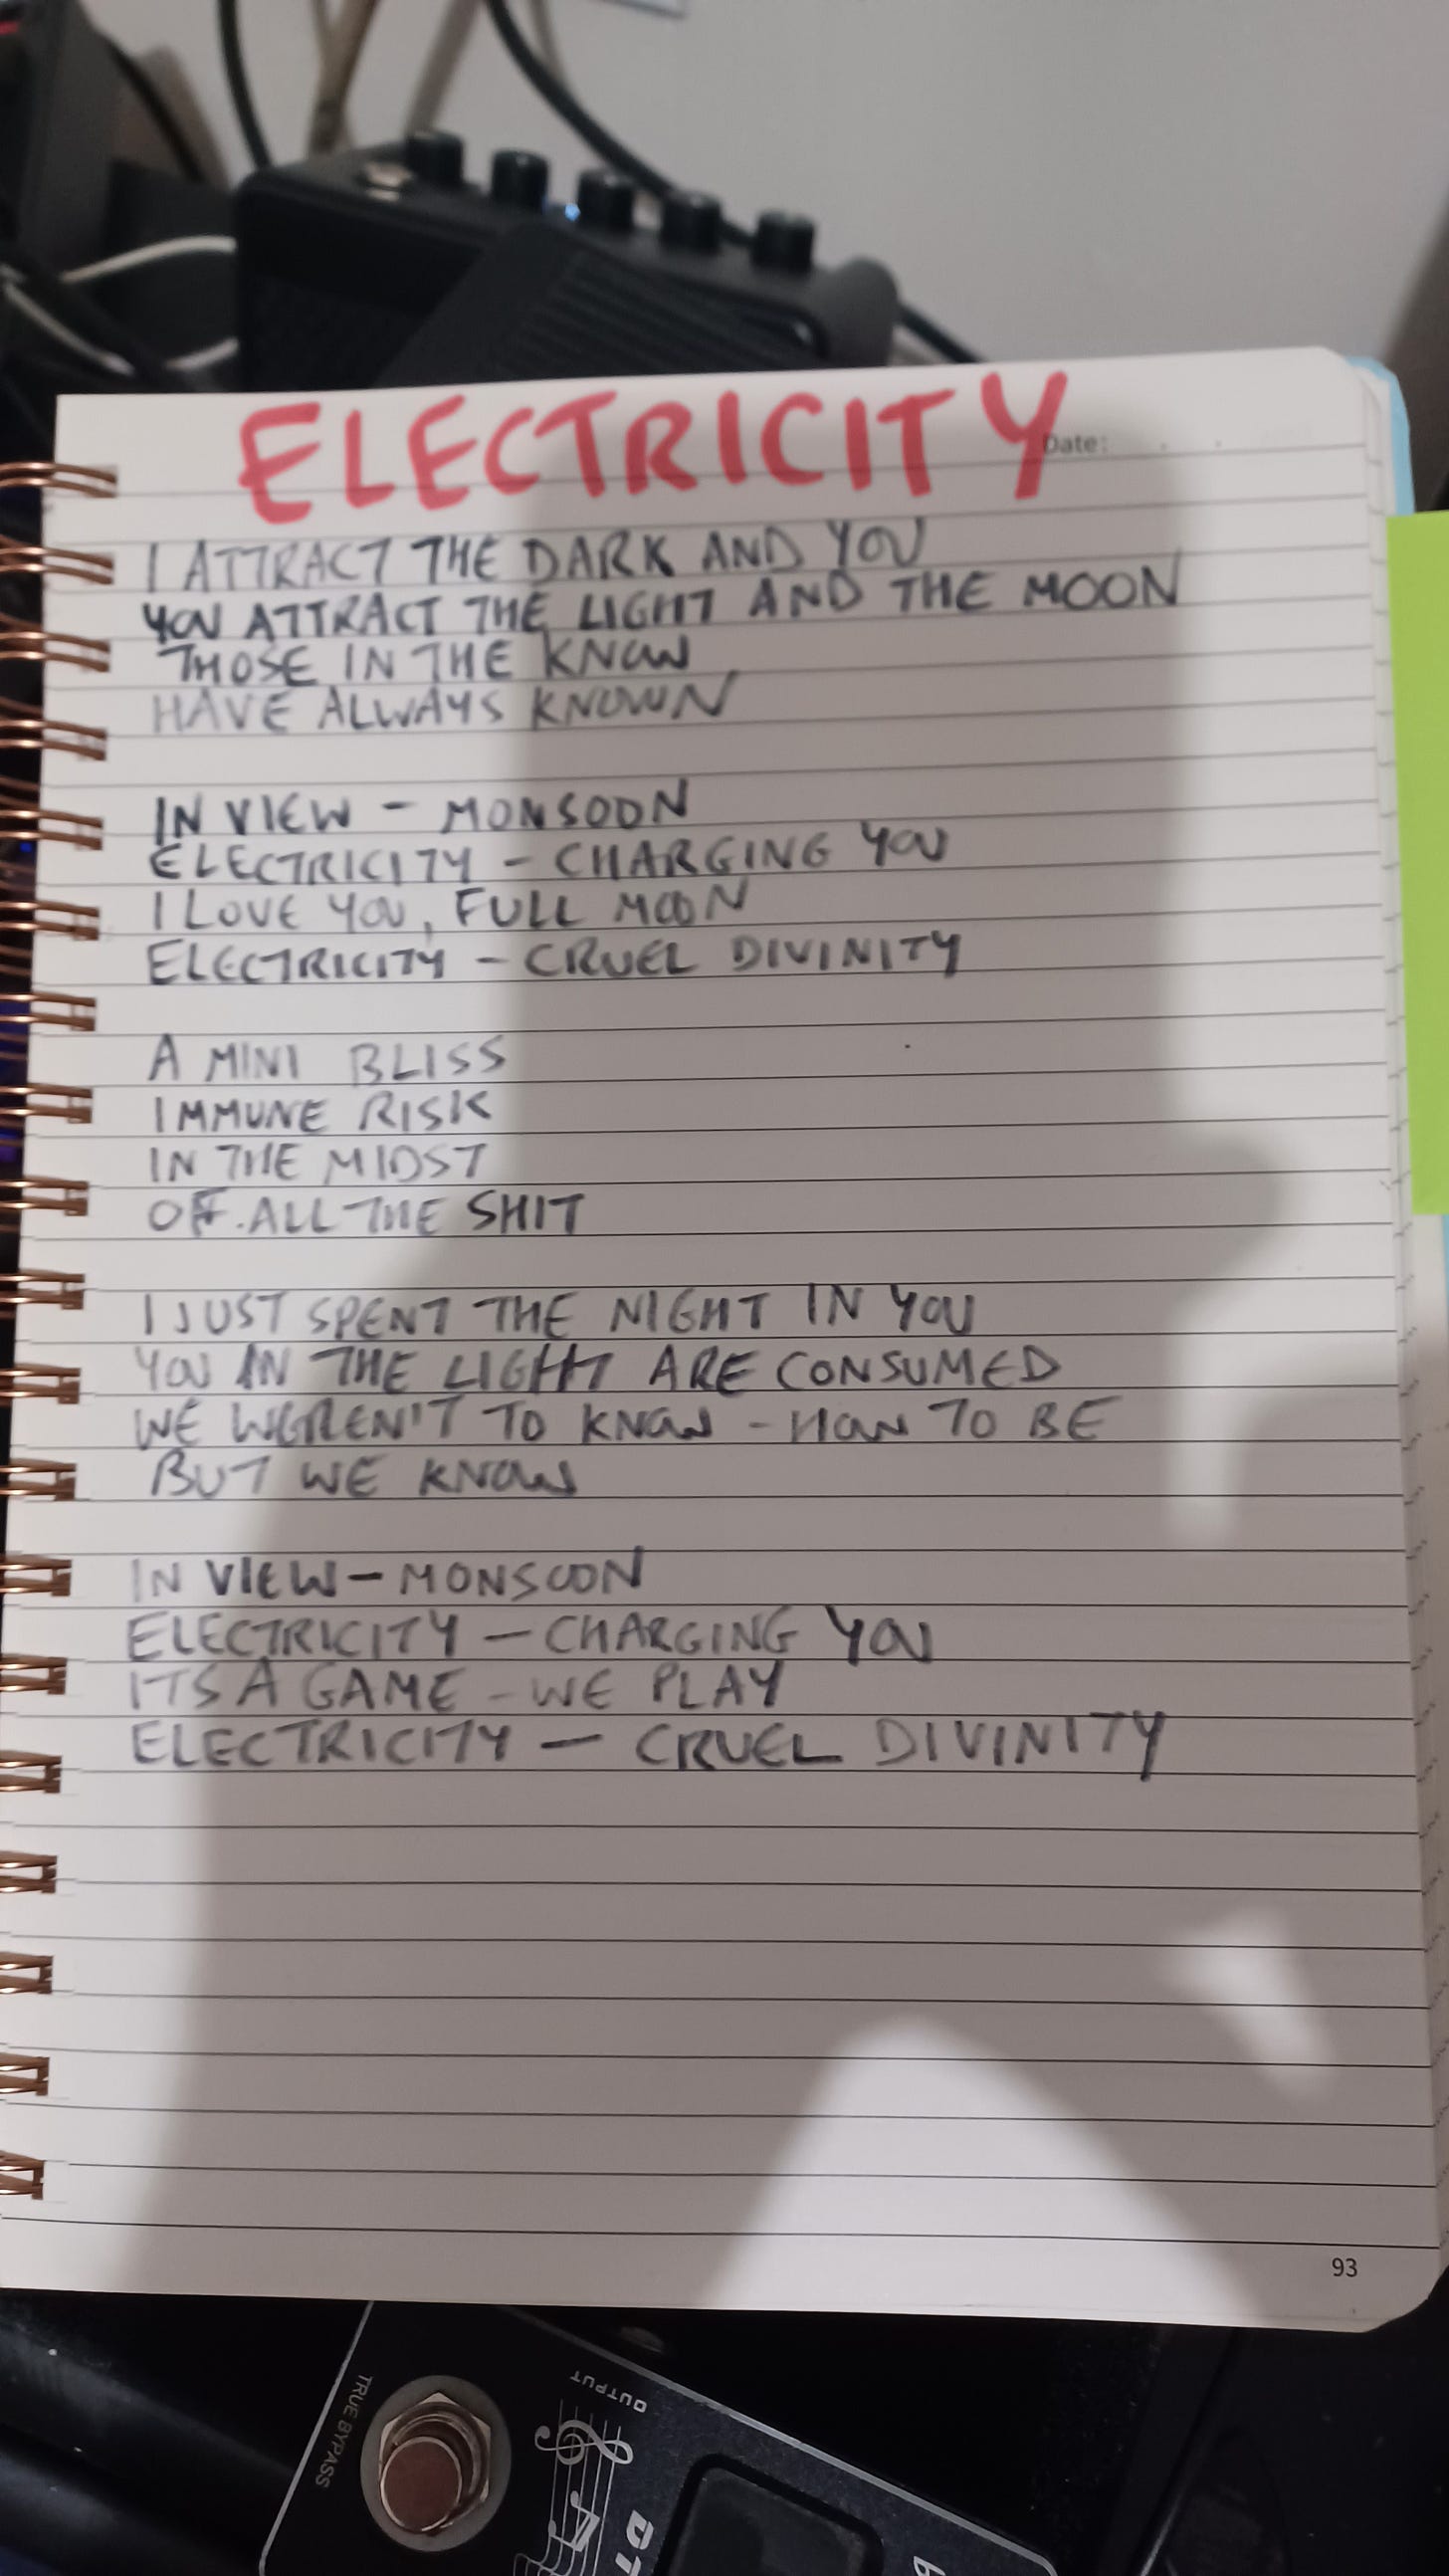 ELECTRICITY
Date:
I ATTRACT THE DARK AND YOU
YOU ATTRACT THE LIGHT AND THE MOON
THOSE IN THE KNOW
HAVE ALWAYS KNOWN
IN VIEW - MONSOON
ELECTRICITY - CHARGING YOU
I LOVE YOU, FULL MOON
ELECTRICITY - CRUEL DIVINITY
A MINI BLISS
IMMUNE RISK
IN THE MIDST
OF ALL THE SHIT
I JUST SPENT THE NIGHT IN YOU
YOU IN THE LIGHT ARE CONSUMED
WE WEREN'T TO KNOW - HOW TO BE
BUT WE KNOW
IN VIEW - MONSOON
ELECTRICITY - CHARGING YOU
ITS A GAME - WE PLAY
ELECTRICITY - CRUEL DIVINITY
93
OUTPUT
TRUE BYPASS